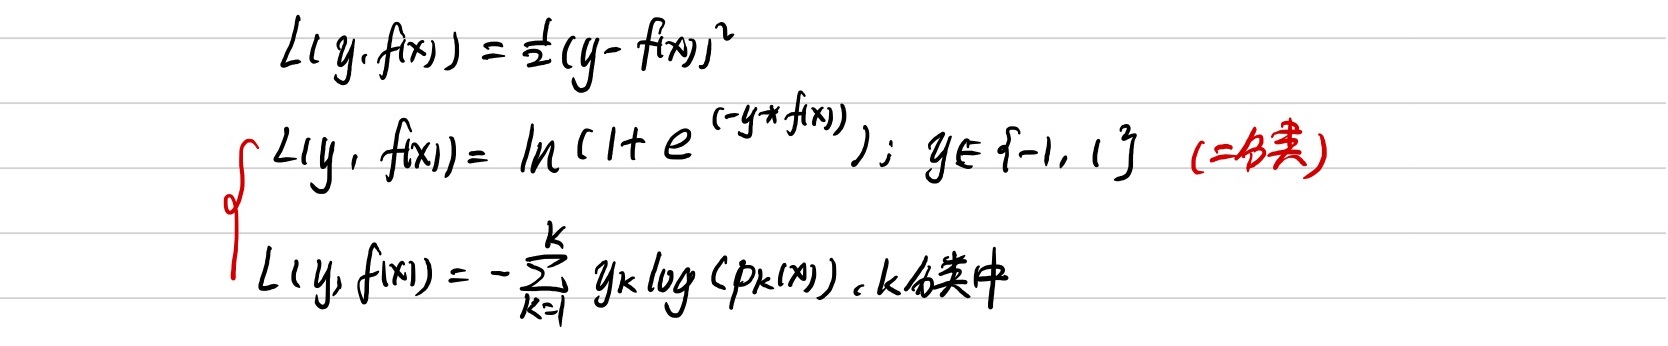 L(y, f(x)) = 1/2 (y - f(x))²
L(y, f(x)) = ln(1 + e^(-y*f(x))); y∈{-1, 1} (二分类)
L(y, f(x)) = -∑_{k=1}^{K} y_k log(p_k(x)). k分类中